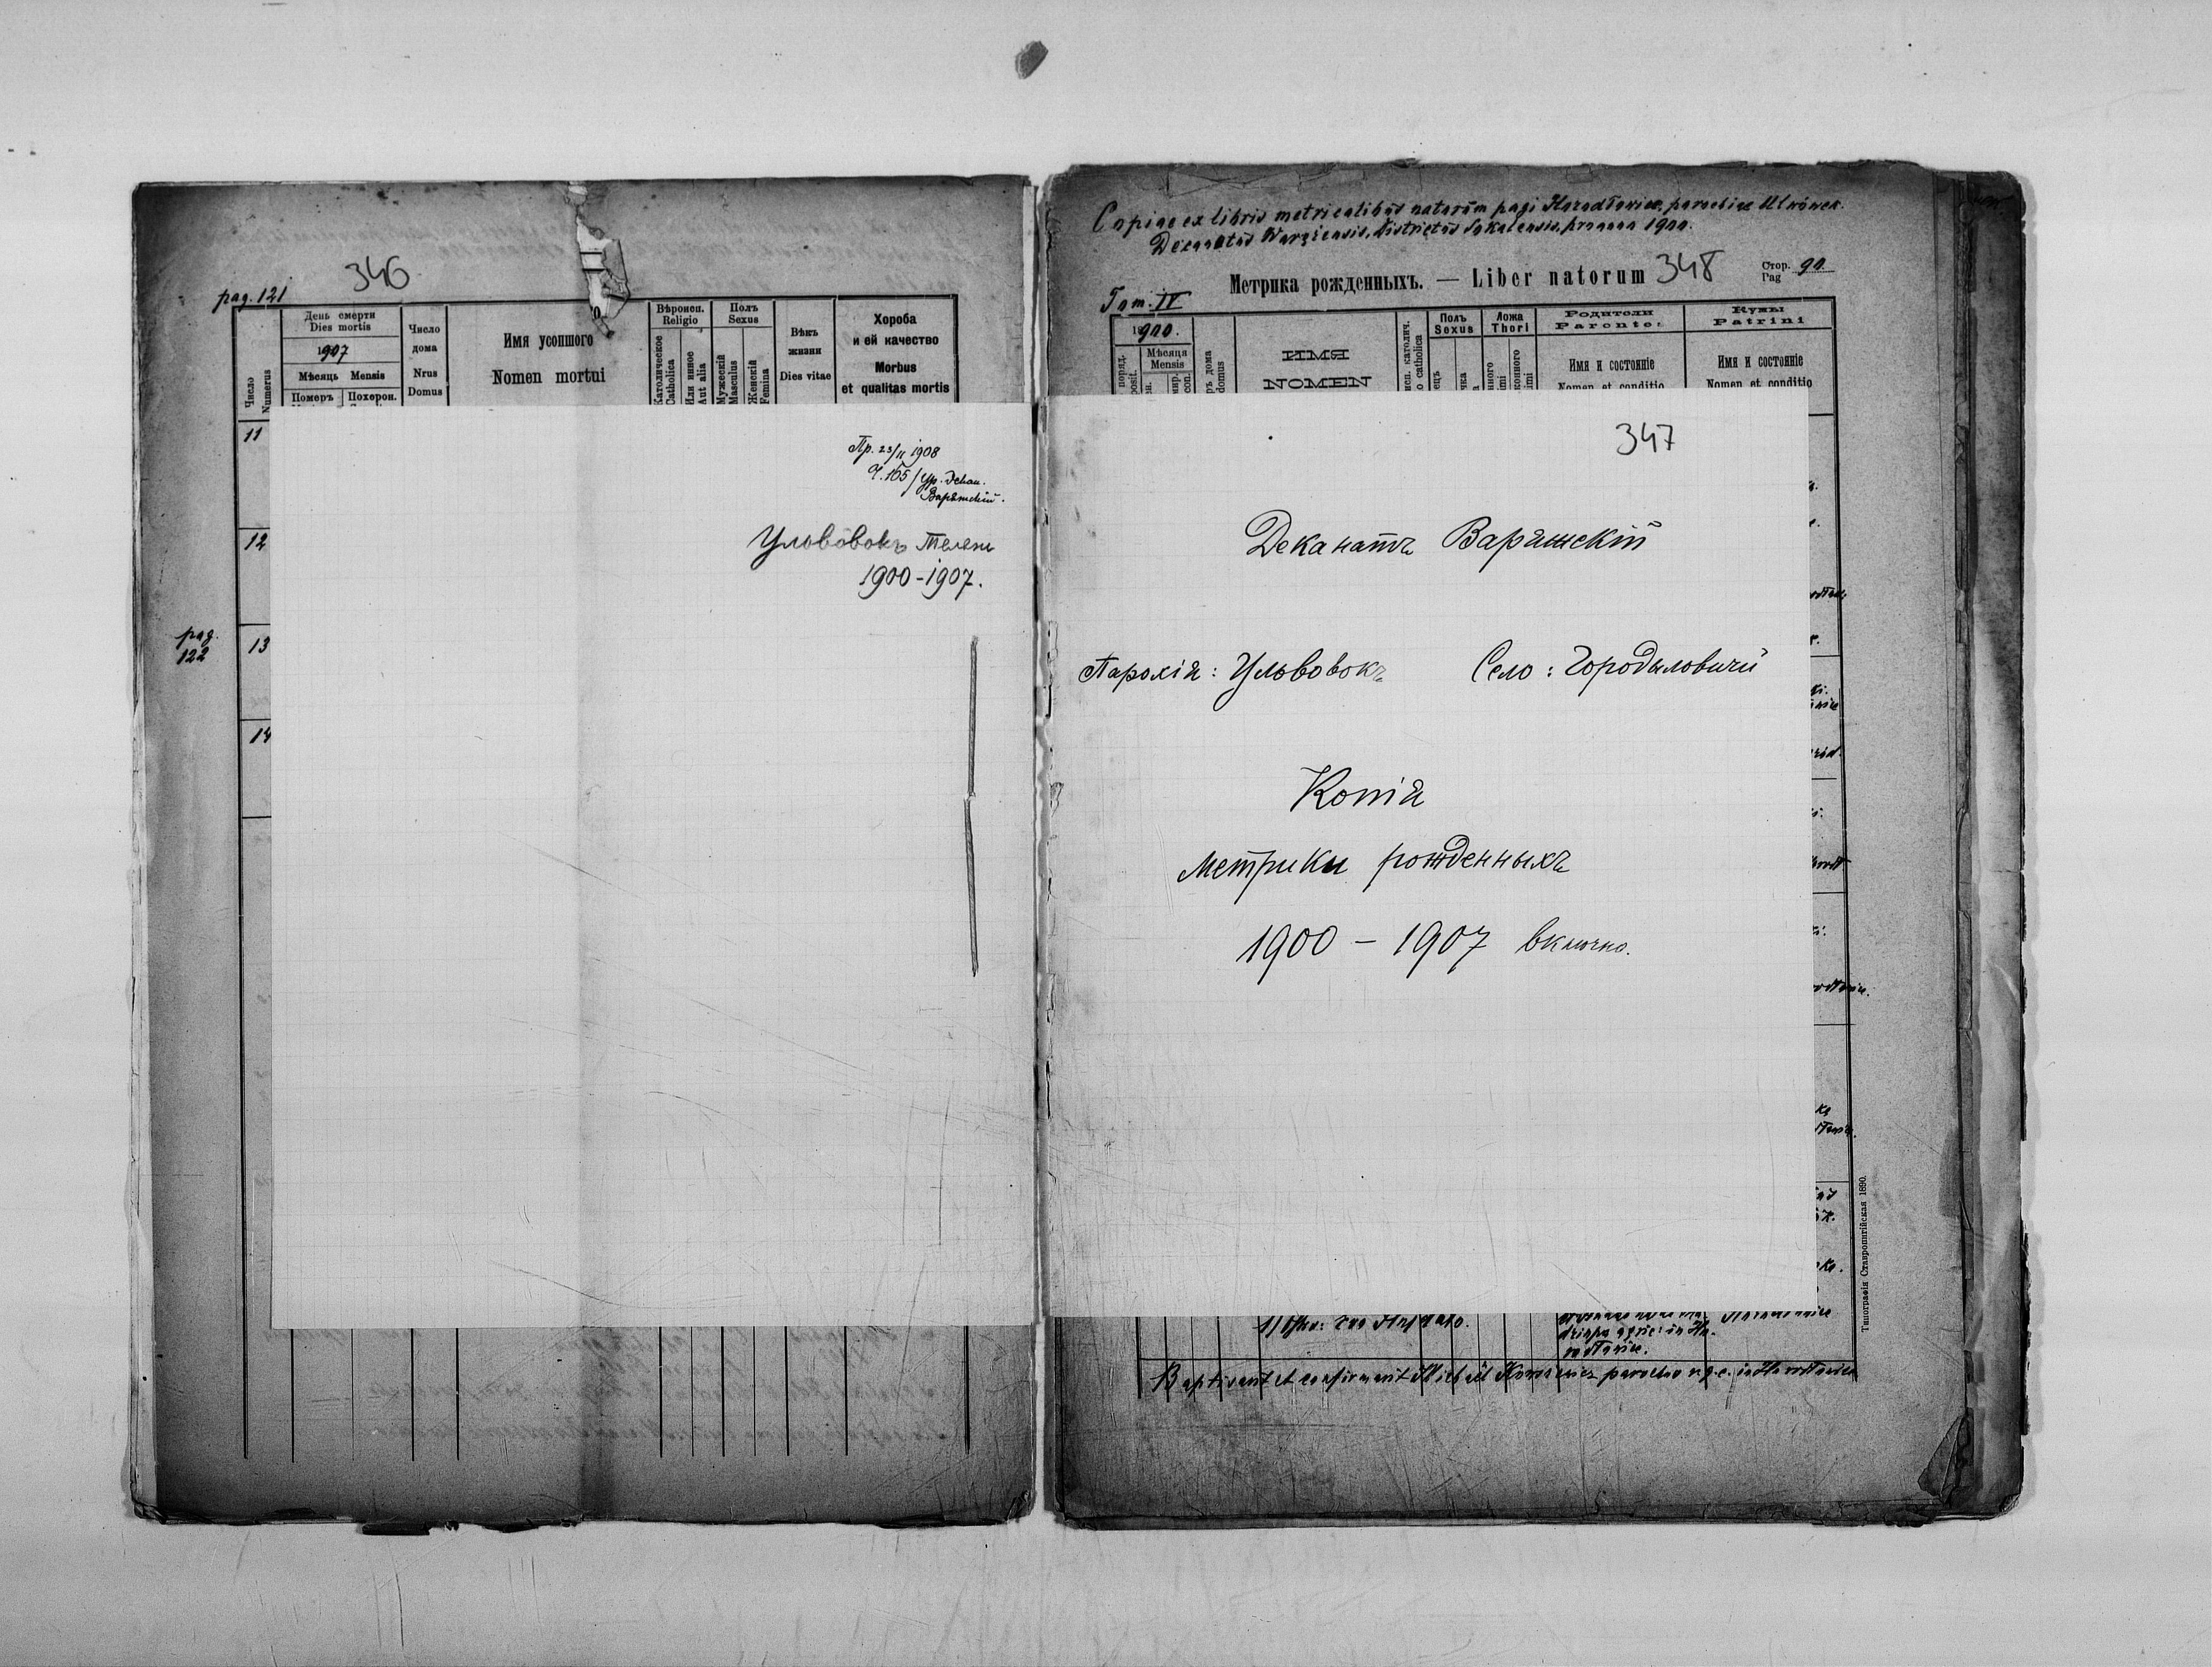 346
pag. 121
День смерти
Dies mortis
1907
Мѣсяць Mensis
Померъ
Похорон.
Число
Numerus
Число
дома
Nrus
Domus
Имя усопшого
Nomen mortui
Вѣроисп.
Religio
Католическое
Catholica
Или иное
Aut alia
Полъ
Sexus
Мужескій
Masculus
Женскій
Femina
Вѣкъ
жизни
Dies vitae
Хороба
и ей качество
Morbus
et qualitas mortis
11
12
pag.
122
13
14
Пр. 23/II 1908
Ч. 165/ Ур. Декан.
Варяжскій.
Ульвовокъ
1900-1907.
Copiae ex libris metricalibus natorum pagi Horodłowice, parochiae Ulwówek.
Decanatus Warężensis, districtus Sokalensis, pro anno 1900.
Метрика рожденныхъ. — Liber natorum 348
Стор.
Pag 90
Tom. IV
1900.
Мѣсяця
Mensis
ИМЯ
NOMEN
Полъ
Sexus
Ложа
Thori
Родители
Parentes
Имя и состояніе
Nomen et conditio
Кумы
Patrini
Имя и состояніе
Nomen et conditio
347
Деканатъ Варяжскій
Парохія: Ульвовокъ Село: Городыловичи
Копія
метрики рожденныхъ
1900 – 1907 включно.
Baptisavit et confirmavit Michaël parochus r. g. c. in Horodłowice
Типографія Ставропигійская 1890.